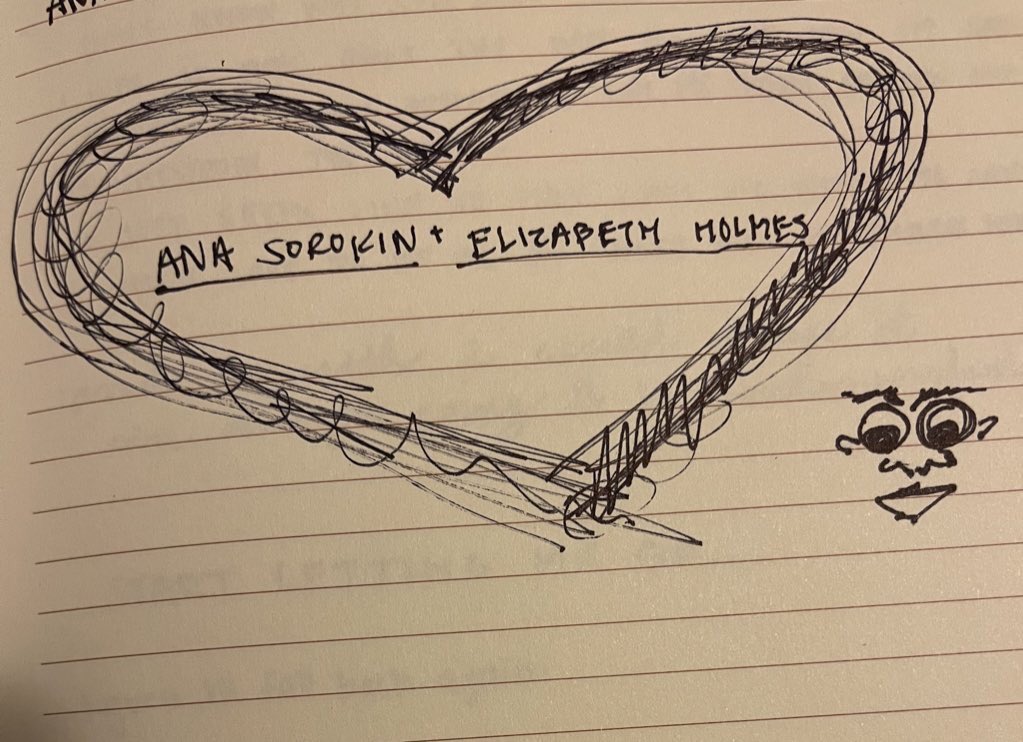 ANA SOROKIN + ELIZABETH HOLMES